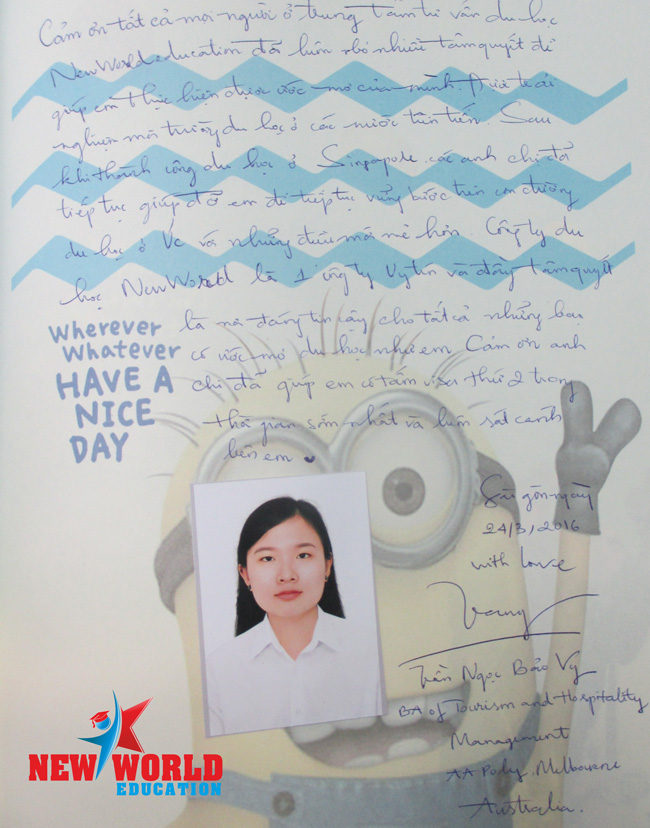 Cảm ơn tất cả mọi người ở trung tâm tư vấn du học
NewWorld education đã luôn bỏ nhiều tâm quyết để
giúp em thực hiện được ước mơ của mình. Được trải
nghiệm môi trường du học ở các nước tiên tiến. Sau
khi thành công du học ở Singapole các anh chị đã
tiếp tục giúp đỡ em để tiếp tục vững bước trên con đường
du học ở Úc với những điều mới mẻ hơn. Công ty du
học NewWorld là 1 công ty Uy tín và đầy tâm quyết
là nơi đáng tin cậy cho tất cả những bạn
có ước mơ du học như em. Cảm ơn anh
chị đã giúp em có tấm visa thứ 2 trong
thời gian sớm nhất và luôn sát cánh
bên em
Wherever
Whatever
HAVE A
NICE
DAY
Sài gòn ngày
24/3/2016
with Love
Trần Ngọc Bảo Vy
BA of Tourism and Hospitality
Management
AA Poly, Melbourne
Australia.
NEW WORLD
EDUCATION